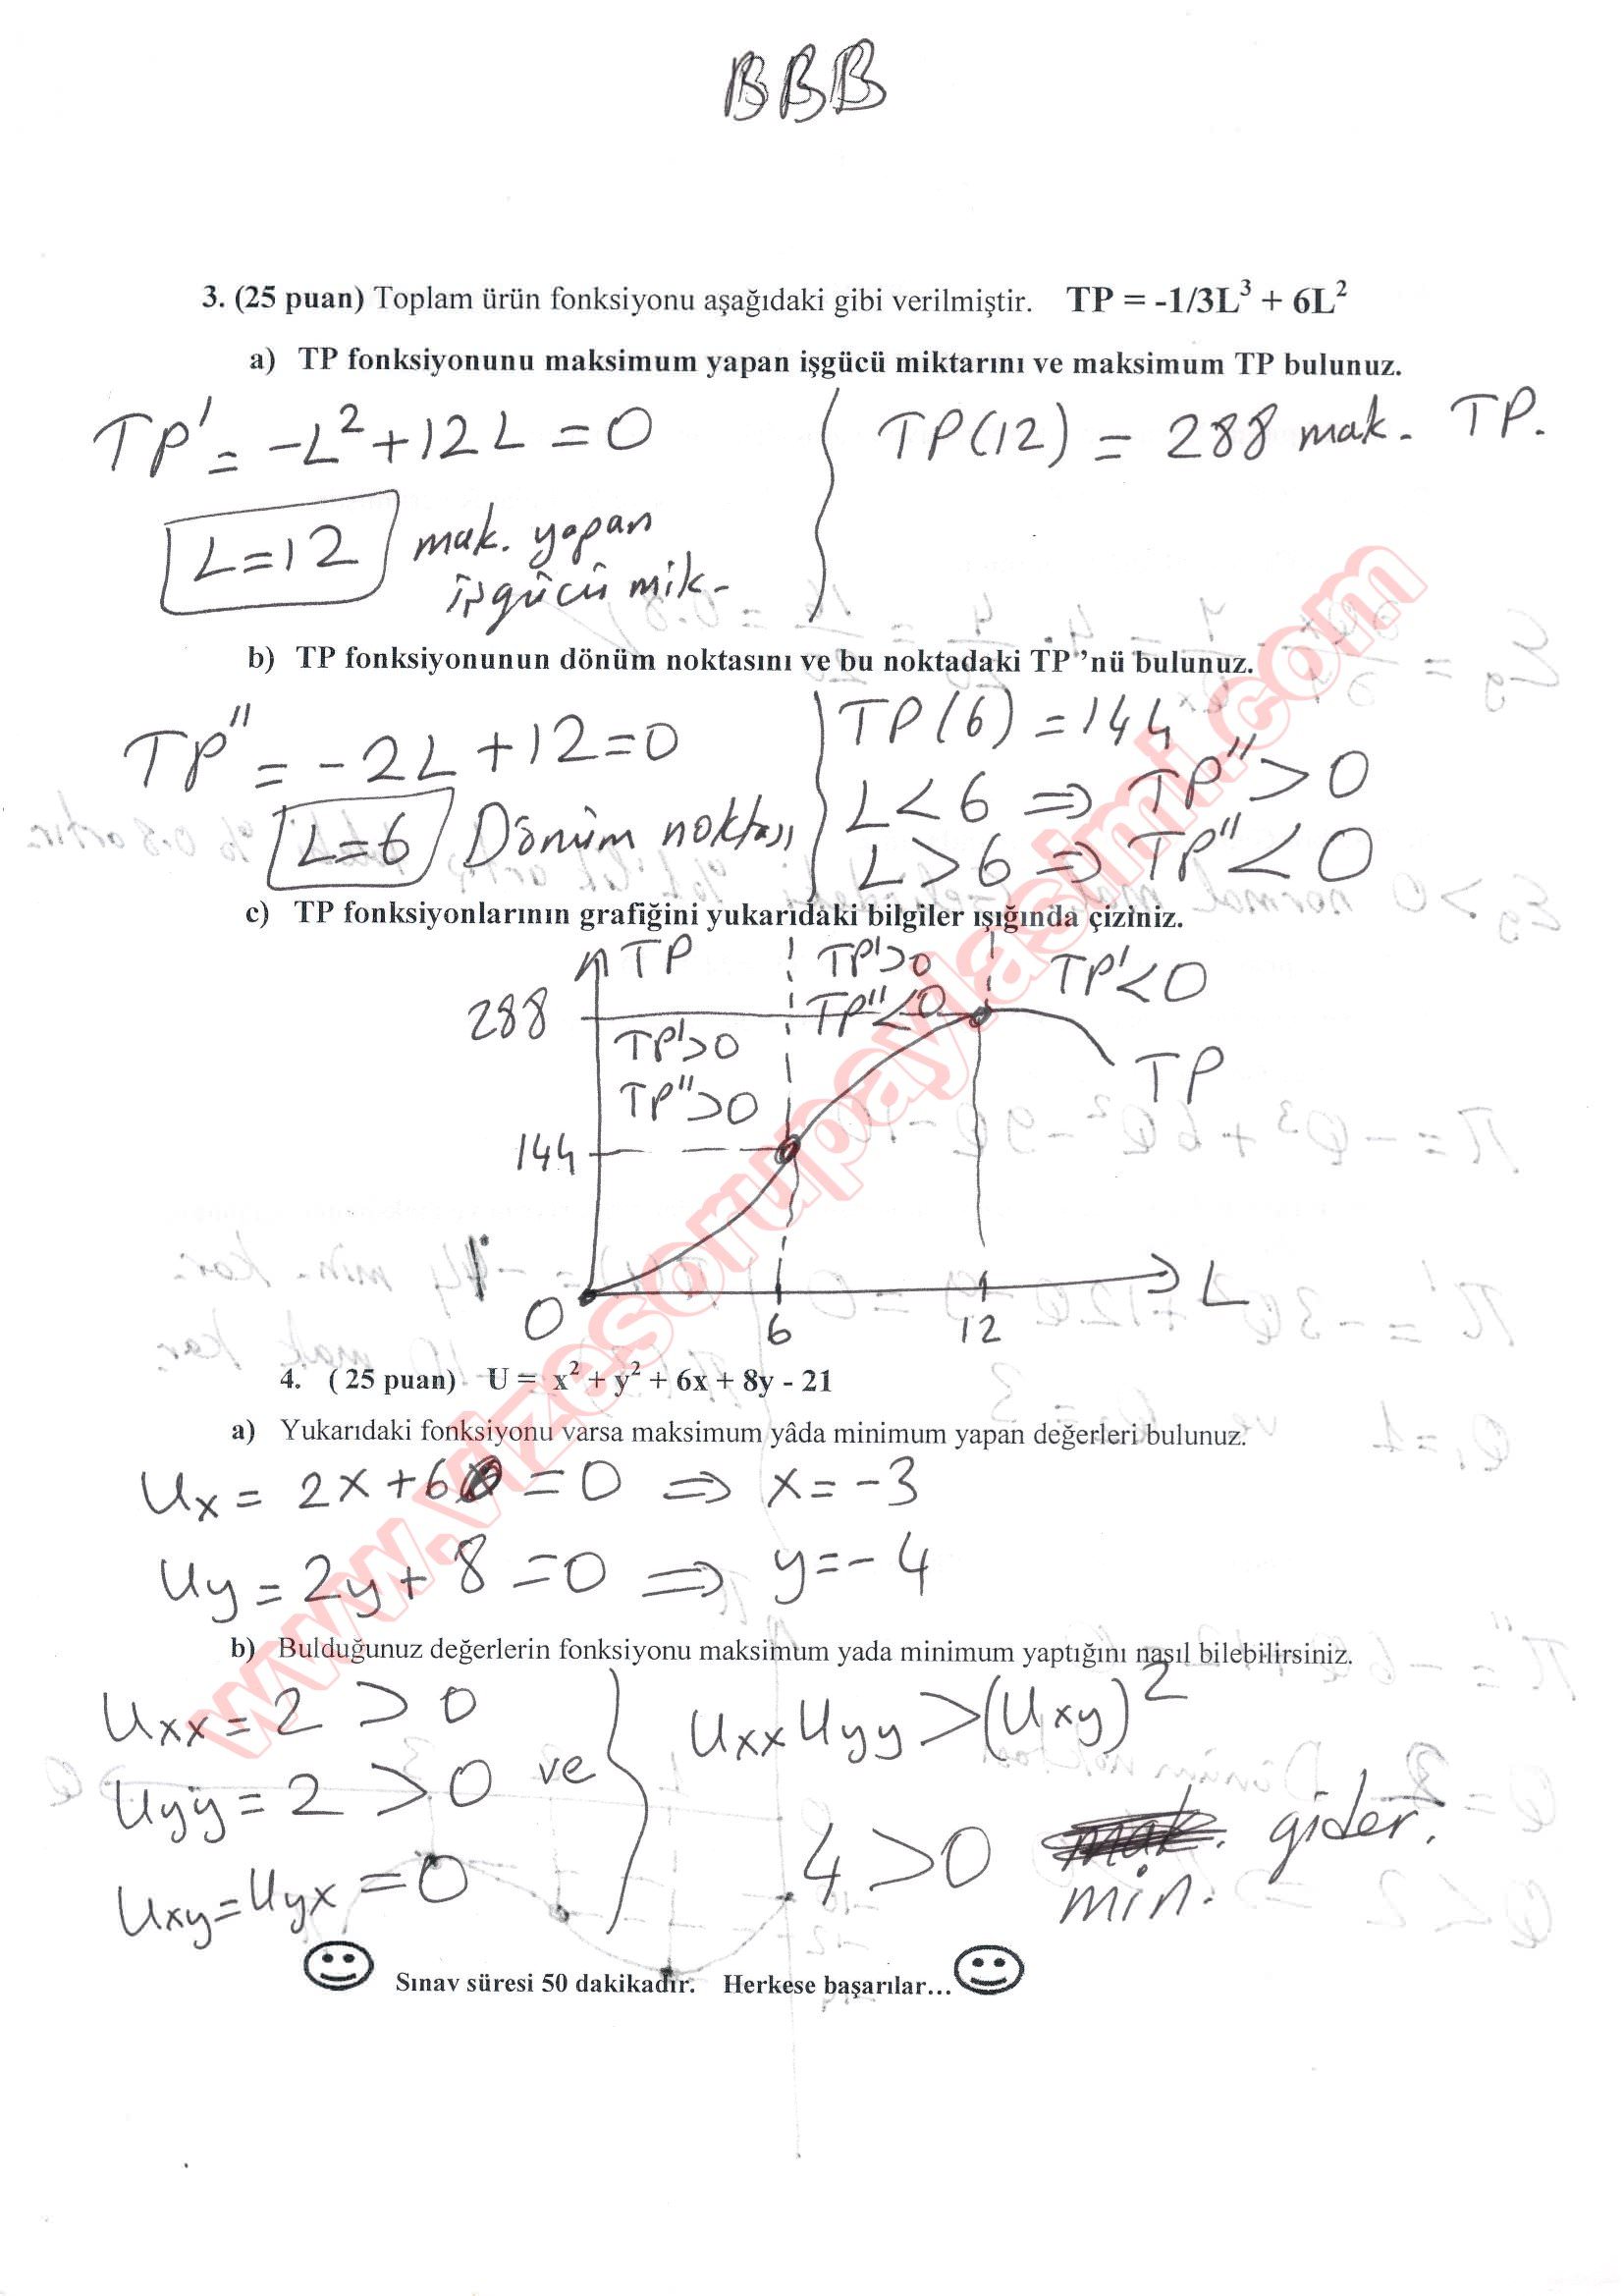 BBB
3. (25 puan) Toplam ürün fonksiyonu aşağıdaki gibi verilmiştir. TP = -1/3L³ + 6L²
a) TP fonksiyonunu maksimum yapan işgücü miktarını ve maksimum TP bulunuz.
TP' = -L² + 12L = 0
TP(12) = 288 mak. TP.
L=12 mak. yapan
işgücü mik.
b) TP fonksiyonunun dönüm noktasını ve bu noktadaki TP'’nü bulunuz.
TP'' = -2L + 12 = 0
L=6 Dönüm noktası
TP(6) = 144
L<6 ⇒ TP''>0
L>6 ⇒ TP''<0
c) TP fonksiyonlarının grafiğini yukarıdaki bilgiler ışığında çiziniz.
TP
TP'>0
TP'<0
288
TP''<0
TP'>0
TP
TP''>0
144
0
L
6
12
4. ( 25 puan) U = x² + y² + 6x + 8y - 21
a) Yukarıdaki fonksiyonu varsa maksimum yâda minimum yapan değerleri bulunuz.
Ux = 2x + 6 = 0 ⇒ x = -3
Uy = 2y + 8 = 0 ⇒ y = -4
b) Bulduğunuz değerlerin fonksiyonu maksimum yada minimum yaptığını nasıl bilebilirsiniz.
Uxx = 2 > 0
Uyy = 2 > 0 ve
Uxy = Uyx = 0
Uxx Uyy > (Uxy)²
4 > 0 mak. gider.
min.
Sınav süresi 50 dakikadır. Herkese başarılar...
www.vizesorupaylasimi.com